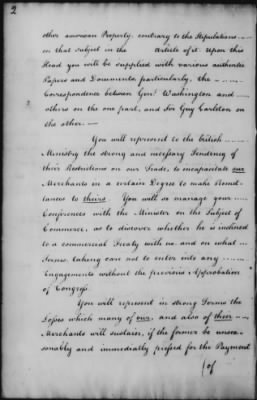 2
other american Property, contrary to the Stipulations
on that subject in the Article of it. Upon this
Head you will be supplied with various authentic
Papers and Documents, particularly, the
Correspondence between Genl. Washington and
others on the one part, and Sir Guy Carleton on
the other
You will represent to the british
Ministry the strong and necessary Tendency of
their Restrictions on our Trade, to incapacitate our
Merchants in a certain Degree to make Remit-
tances to theirs. You will so manage your
Conferences with the Minister on the Subject of
Commerce, as to discover whether he is inclined
to a commercial Treaty with us and on what
Terms, taking care not to enter into any
Engagements without the previous Approbation
of Congress.
You will represent in strong Terms the
Losses which many of our, and also of their
Merchants will sustain, if the former be unrea-
sonably and immediately pressed for the Payment
(of